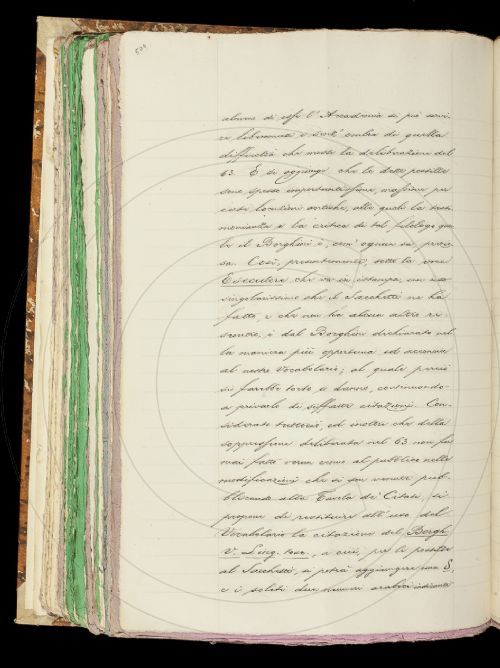 504
alcune di esse l'Accademia si può servi-
re liberamente e senz'ombra di quella
difficoltà che mosse la deliberazione del
63. E si aggiunga che le dette postille
sono spesso importantissime, massime per
certe locuzioni antiche, alle quali la testi
monianza e la critica di tal filologo qua
le il Borghini è, com'ognun sa, prezio
sa. Così, presentemente, sotto la voce
Escutere che va in istampa, un uso
singolarissimo che il Sacchetti ne ha
fatto, e che non ha alcun altro ri-
scontro, è dal Borghini dichiarato nel
la maniera più opportuna ed acconcia
al nostro Vocabolario; al quale perciò
si farebbe torto e danno, continuando-
a privarlo di siffatte citazioni. Con-
siderato tuttociò, ed inoltre che della
soppressione deliberata nel 63 non fu
mai fatto verun cenno al pubblico nelle
modificazioni che si son venute pub-
blicando alla Tavola de' Citati, si
propone di restituire all'uso del
Vocabolario la citazione del Borgh.
V. Ling. tosc., a cui, per le postille
al Sacchetti, si potrà aggiungere una S,
e i soliti due numeri arabici indicanti